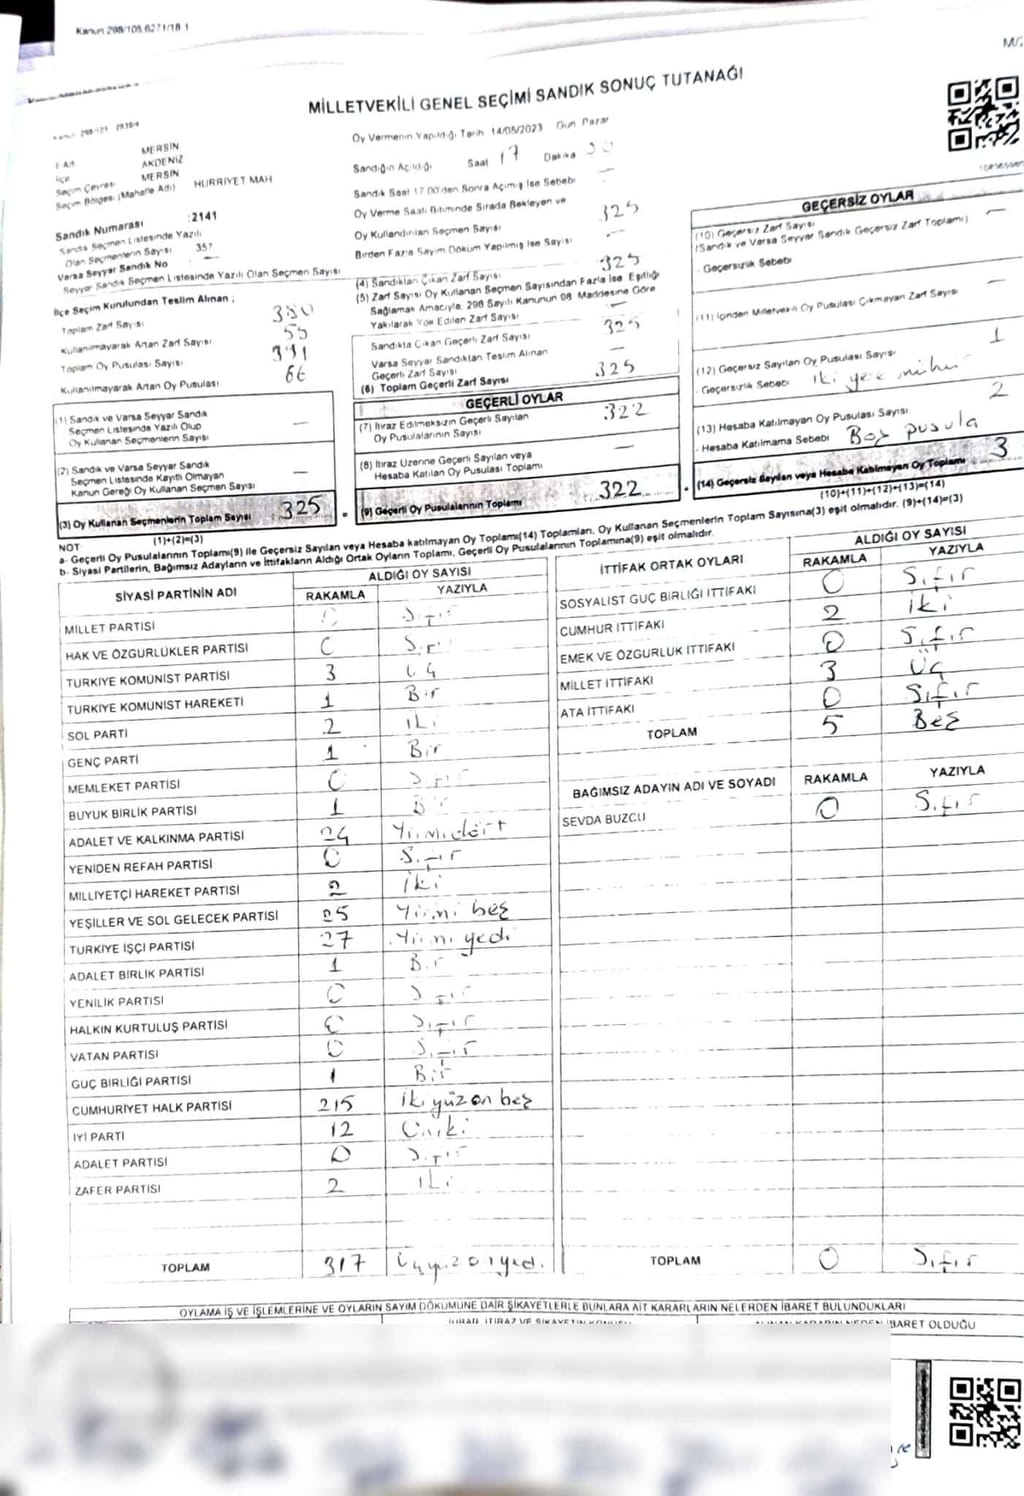 Kanun 298/105 6271/18 1
MİLLETVEKİLİ GENEL SEÇİMİ SANDIK SONUÇ TUTANAĞI
MERSİN
İlçe AKDENİZ
Seçim Çevresi MERSİN
Seçim Bölgesi (Mahalle Adı) HÜRRİYET MAH
Sandık Numarası :2141
Sandık Seçmen Listesinde Yazılı
Olan Seçmenlerin Sayısı 357
Varsa Seyyar Sandık No
Seyyar Sandık Seçmen Listesinde Yazılı Olan Seçmen Sayısı
İlçe Seçim Kurulundan Teslim Alınan ;
Toplam Zarf Sayısı 380
Kullanılmayarak Artan Zarf Sayısı 55
Toplam Oy Pusulası Sayısı 391
Kullanılmayarak Artan Oy Pusulası 66
(1) Sandık ve Varsa Seyyar Sandık
Seçmen Listesinde Yazılı Olup
Oy Kullanan Seçmenlerin Sayısı —
(2) Sandık ve Varsa Seyyar Sandık
Seçmen Listesinde Kayıtlı Olmayan
Kanun Gereği Oy Kullanan Seçmen Sayısı —
(3) Oy Kullanan Seçmenlerin Toplam Sayısı 325
(1)+(2)=(3)
Oy Vermenin Yapıldığı Tarih 14/05/2023 Gün Pazar
Sandığın Açıldığı Saat 17 Dakika
Sandık Saat 17 00'den Sonra Açımış İse Sebebi —
Oy Verme Saati Bitiminde Sırada Bekleyen ve
Oy Kullandırılan Seçmen Sayısı 325
Birden Fazla Sayım Döküm Yapılmış İse Sayısı —
(4) Sandıktan Çıkan Zarf Sayısı 325
(5) Zarf Sayısı Oy Kullanan Seçmen Sayısından Fazla İse Eşitliği
Sağlamak Amacıyla, 298 Sayılı Kanunun 98 Maddesine Göre
Yakılarak Yok Edilen Zarf Sayısı —
Sandıkta Çıkan Geçerli Zarf Sayısı 325
Varsa Seyyar Sandıktan Teslim Alınan
Geçerli Zarf Sayısı —
(6) Toplam Geçerli Zarf Sayısı 325
GEÇERLİ OYLAR
(7) İtiraz Edilmeksizin Geçerli Sayılan
Oy Pusulalarının Sayısı 322
(8) İtiraz Üzerine Geçerli Sayılan veya
Hesaba Katılan Oy Pusulası Toplamı —
(9) Geçerli Oy Pusulalarının Toplamı 322
GEÇERSİZ OYLAR
(10) Geçersiz Zarf Sayısı
(Sandık ve Varsa Seyyar Sandık Geçersiz Zarf Toplamı) —
- Geçersizlik Sebebi
(11) İçinden Milletvekili Oy Pusulası Çıkmayan Zarf Sayısı —
(12) Geçersiz Sayılan Oy Pusulası Sayısı 1
- Geçersizlik Sebebi İki yere mühür
(13) Hesaba Katılmayan Oy Pusulası Sayısı 2
- Hesaba Katılmama Sebebi Boş pusula
(14) Geçersiz Sayılan veya Hesaba Katılmayan Oy Toplamı 3
(10)+(11)+(12)+(13)=(14)
NOT
a- Geçerli Oy Pusulalarının Toplamı(9) ile Geçersiz Sayılan veya Hesaba katılmayan Oy Toplamı(14) Toplamları, Oy Kullanan Seçmenlerin Toplam Sayısına(3) eşit olmalıdır. (9)+(14)=(3)
b- Siyasi Partilerin, Bağımsız Adayların ve İttifakların Aldığı Ortak Oyların Toplamı, Geçerli Oy Pusulalarının Toplamına(9) eşit olmalıdır.
SİYASİ PARTİNİN ADI ALDIĞI OY SAYISI
RAKAMLA YAZIYLA
MİLLET PARTİSİ 0 Sıfır
HAK VE ÖZGÜRLÜKLER PARTİSİ 0 Sıfır
TÜRKİYE KOMÜNİST PARTİSİ 3 Üç
TÜRKİYE KOMÜNİST HAREKETİ 1 Bir
SOL PARTİ 2 İki
GENÇ PARTİ 1 Bir
MEMLEKET PARTİSİ 0 Sıfır
BÜYÜK BİRLİK PARTİSİ 1 Bir
ADALET VE KALKINMA PARTİSİ 24 Yirmidört
YENİDEN REFAH PARTİSİ 0 Sıfır
MİLLİYETÇİ HAREKET PARTİSİ 2 İki
YEŞİLLER VE SOL GELECEK PARTİSİ 25 Yirmi beş
TÜRKİYE İŞÇİ PARTİSİ 27 Yirmi yedi
ADALET BİRLİK PARTİSİ 1 Bir
YENİLİK PARTİSİ 0 Sıfır
HALKIN KURTULUŞ PARTİSİ 0 Sıfır
VATAN PARTİSİ 0 Sıfır
GÜÇ BİRLİĞİ PARTİSİ 1 Bir
CUMHURİYET HALK PARTİSİ 215 iki yüz on beş
İYİ PARTİ 12 Oniki
ADALET PARTİSİ 0 Sıfır
ZAFER PARTİSİ 2 İki
TOPLAM 317 Üçyüz onyedi
İTTİFAK ORTAK OYLARI ALDIĞI OY SAYISI
RAKAMLA YAZIYLA
SOSYALİST GÜÇ BİRLİĞİ İTTİFAKI 0 Sıfır
CUMHUR İTTİFAKI 2 İki
EMEK VE ÖZGÜRLÜK İTTİFAKI 0 Sıfır
MİLLET İTTİFAKI 3 Üç
ATA İTTİFAKI 0 Sıfır
TOPLAM 5 Beş
BAĞIMSIZ ADAYIN ADI VE SOYADI RAKAMLA YAZIYLA
SEVDA BUZCU 0 Sıfır
TOPLAM 0 Sıfır
OYLAMA İŞ VE İŞLEMLERİNE VE OYLARIN SAYIM DÖKÜMÜNE DAİR ŞİKAYETLERLE BUNLARA AİT KARARLARIN NELERDEN İBARET BULUNDUKLARI